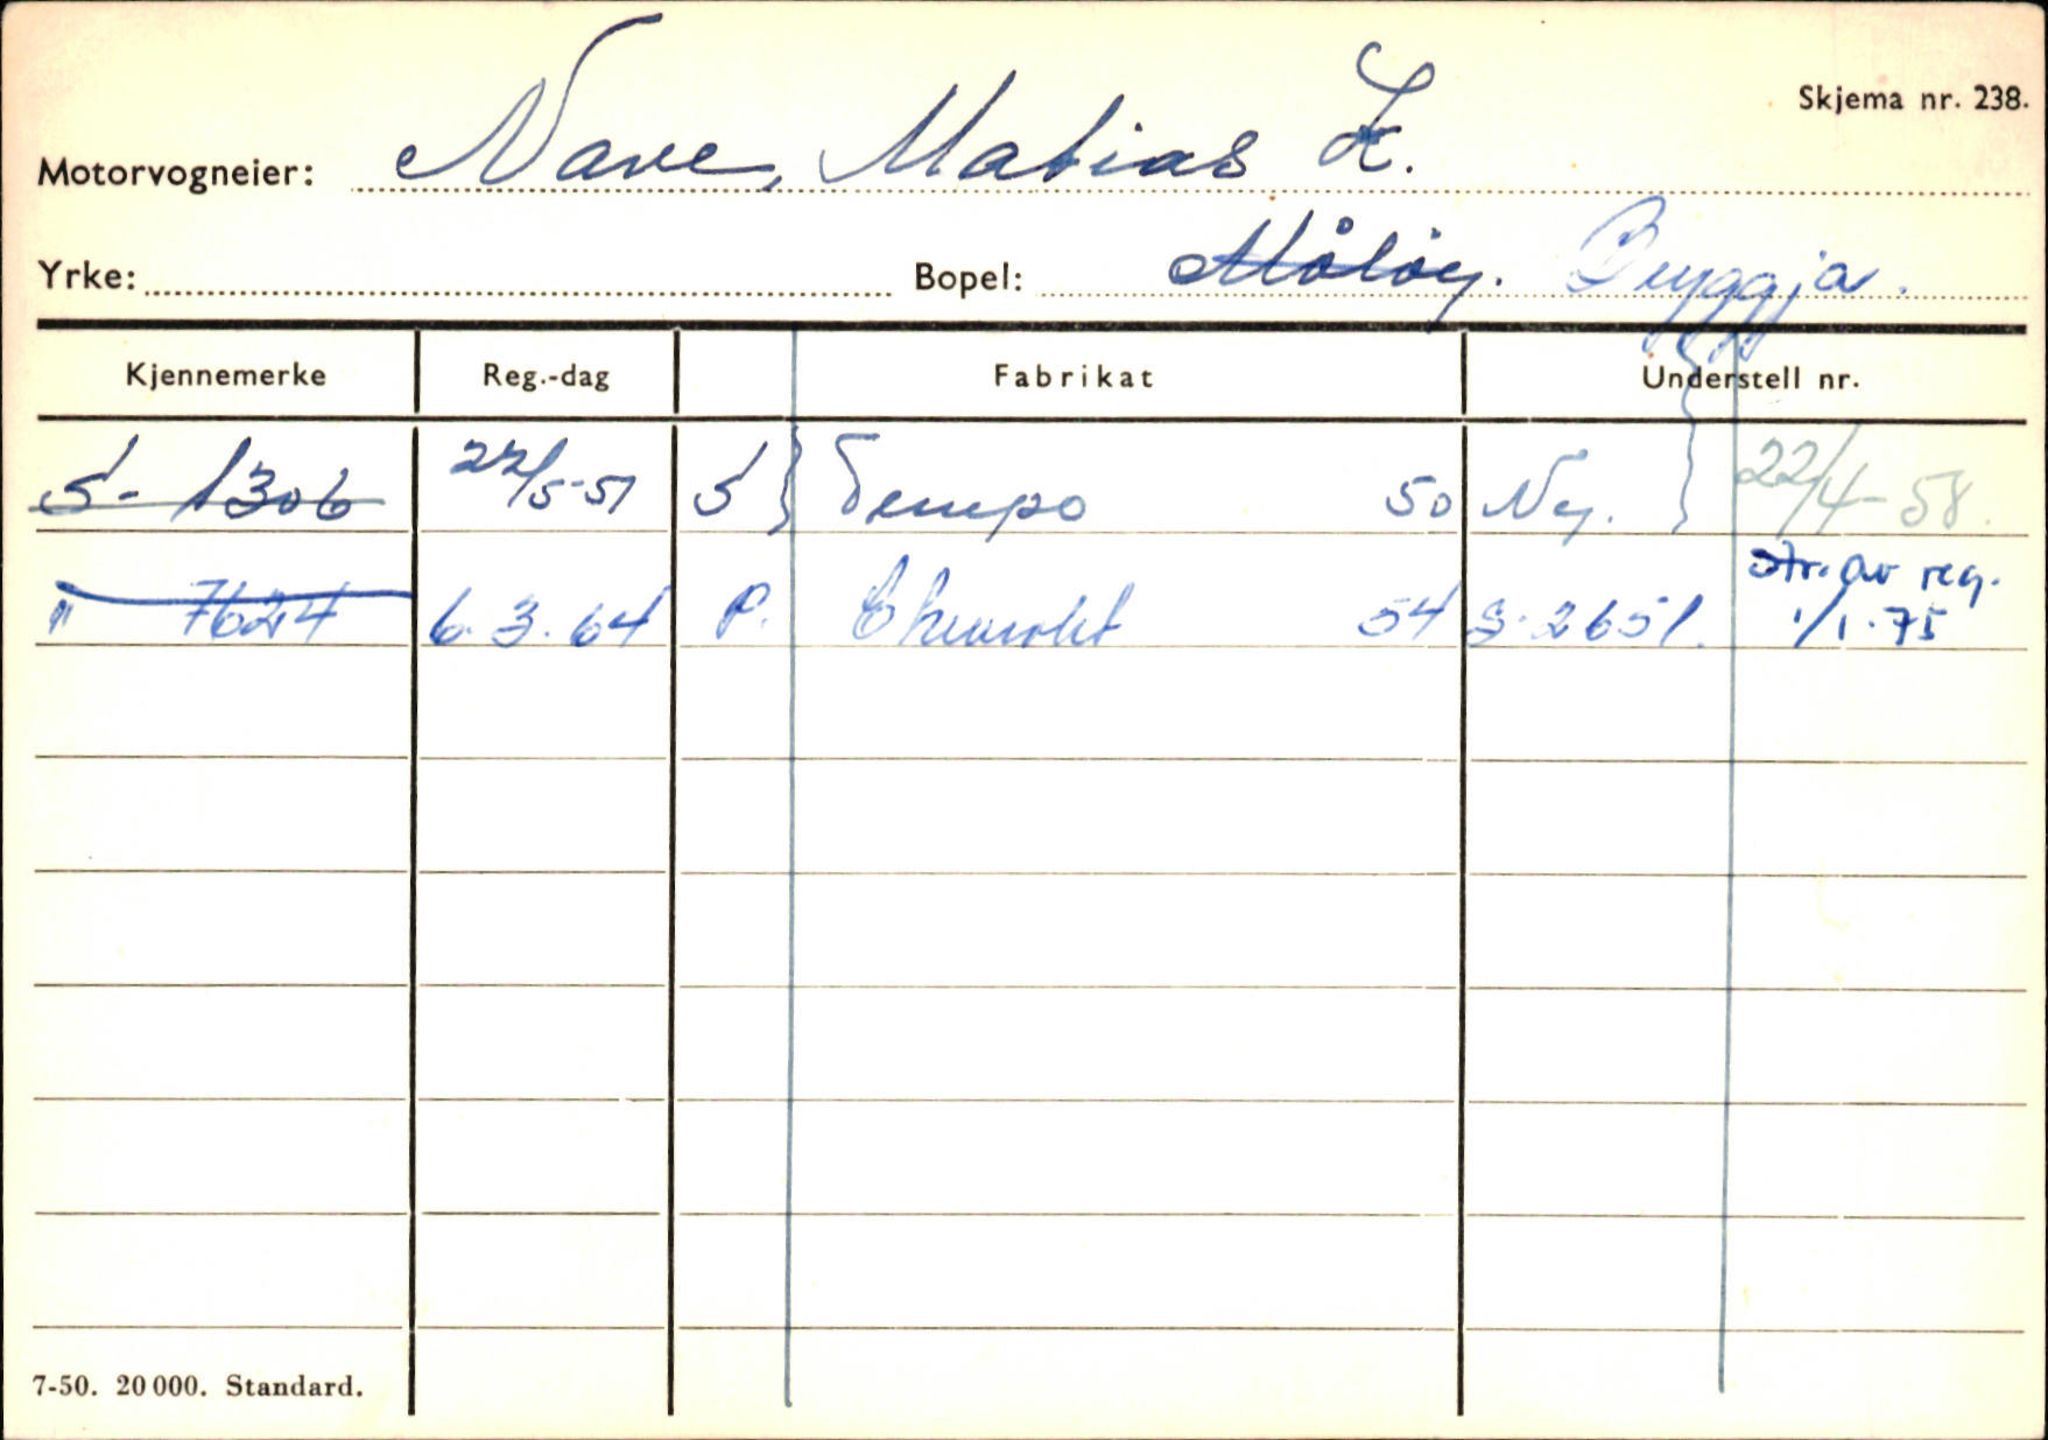 Skjema nr. 238.
Motorvogneier: Nave, Matias
Yrke: Bopel: Måløy. Bryggja.
Kjennemerke Reg.-dag Fabrikat Understell nr.
S- 1306 22/5-51 S Tempo 50 Ny. 22/4-58.
" 7624 6.3.64 P. Chevrolet 54 S-2651. str. av reg. 1/1.75
7-50. 20 000. Standard.